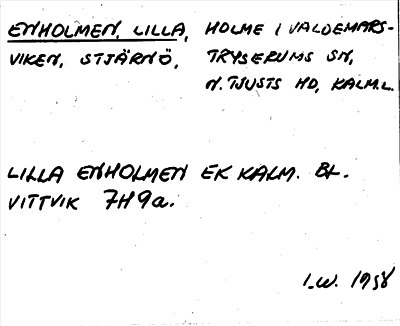 ENHOLMEN, LILLA, HOLME I VALDEMARS-
VIKEN, STJÄRNÖ, TRYSERUMS SN,
N. TJUSTS HD, KALM.L.
LILLA ENHOLMEN EK KALM. BL.
VITTVIK 7H9a.
I.W. 1958